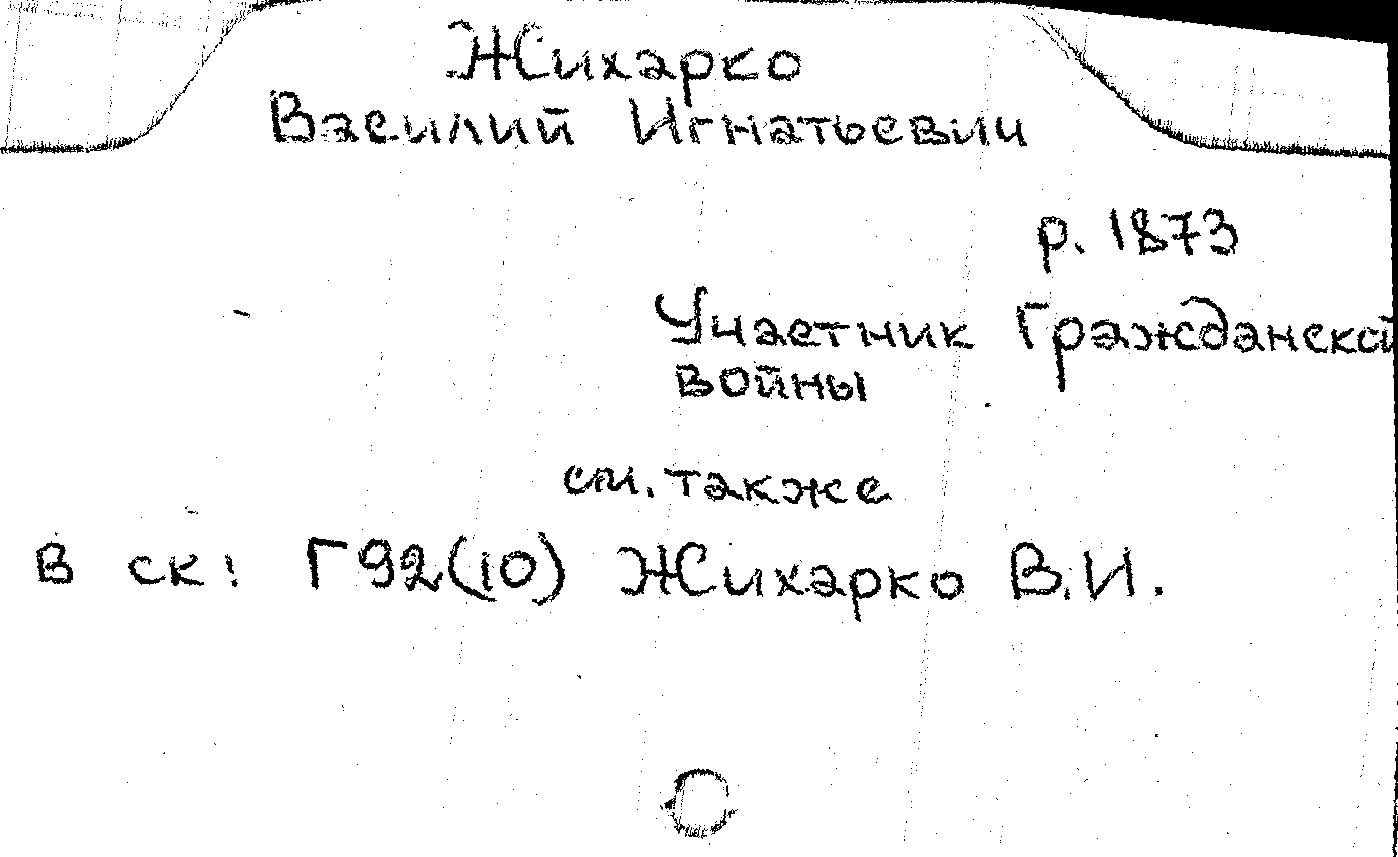 Жихарко
Василий Игнатьевич
р. 1873
Участник Гражданской
войны
см. также
В ск: Г92(10) Жихарко В.И.